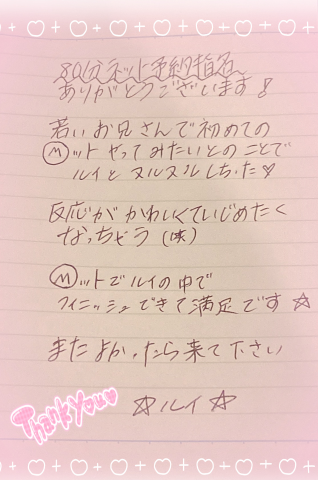 80分ネット予約指名
ありがとうございます!
若いお兄さんで初めての
Ⓜット やってみたいとのことで
ルイと ヌルヌルしちゃった♡
反応が かわいくていじめたく
なっちゃう (笑)
Ⓜットでルイの中で
フィニッシュできて満足です☆
またよかったら来て下さい
☆ルイ☆
Thank You♥